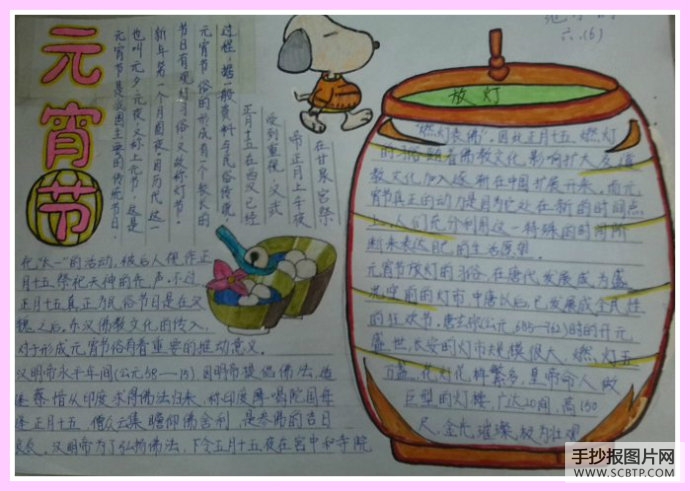 元宵节
元宵节是我国主要的传统节日,
也叫元夕元夜,又称上元节,这是
新年第一个月圆夜。因历代这一
节日有观灯习俗,又故称灯节。
元宵节俗的形成有一个较长的
过程,据一般资料与民俗传说,
正月十五在西汉已经
受到重视,汉武
帝正月上辛夜
在甘泉宫祭
祀"太一"的活动,被后人视作正
月十五祭祀天神的先声。不过,
正月十五真正为民俗节日是在汉
魏之后。东汉佛教文化的传入,
对于形成元宵节俗有着重要的推动意义。
汉明帝永平年间(公元58—
),因明帝提倡佛法,
蔡愔从印度求得佛法归来,称印度摩
正月十五,僧众云集瞻仰佛舍利,是参佛的吉日
良辰,汉明帝为了弘扬佛法,下令正月十五夜在宫中和寺院
六.(6)
放灯
"燃灯表佛"。因此正月十五燃灯
的习俗随着佛教文化影响扩大及道
教文化加入逐渐在中国扩展开来。而元
宵节真正的动力是因为它处在新的时间点
上,人们充分利用这一特殊的时间阶
段来表达自己的生活愿望。
元宵节放灯的习俗,在唐代发展成为盛
况空前的灯市,中唐以后,已发展成全民性
的狂欢节。唐玄宗(公元685—762)时的开元
盛世,长安的灯市规模很大,燃灯五
万盏,花灯花样繁多,皇帝命人做
巨型的灯楼,广达20间,高150
尺,金光璀璨,极为壮观
手抄报图片网
WWW.SCBTP.COM